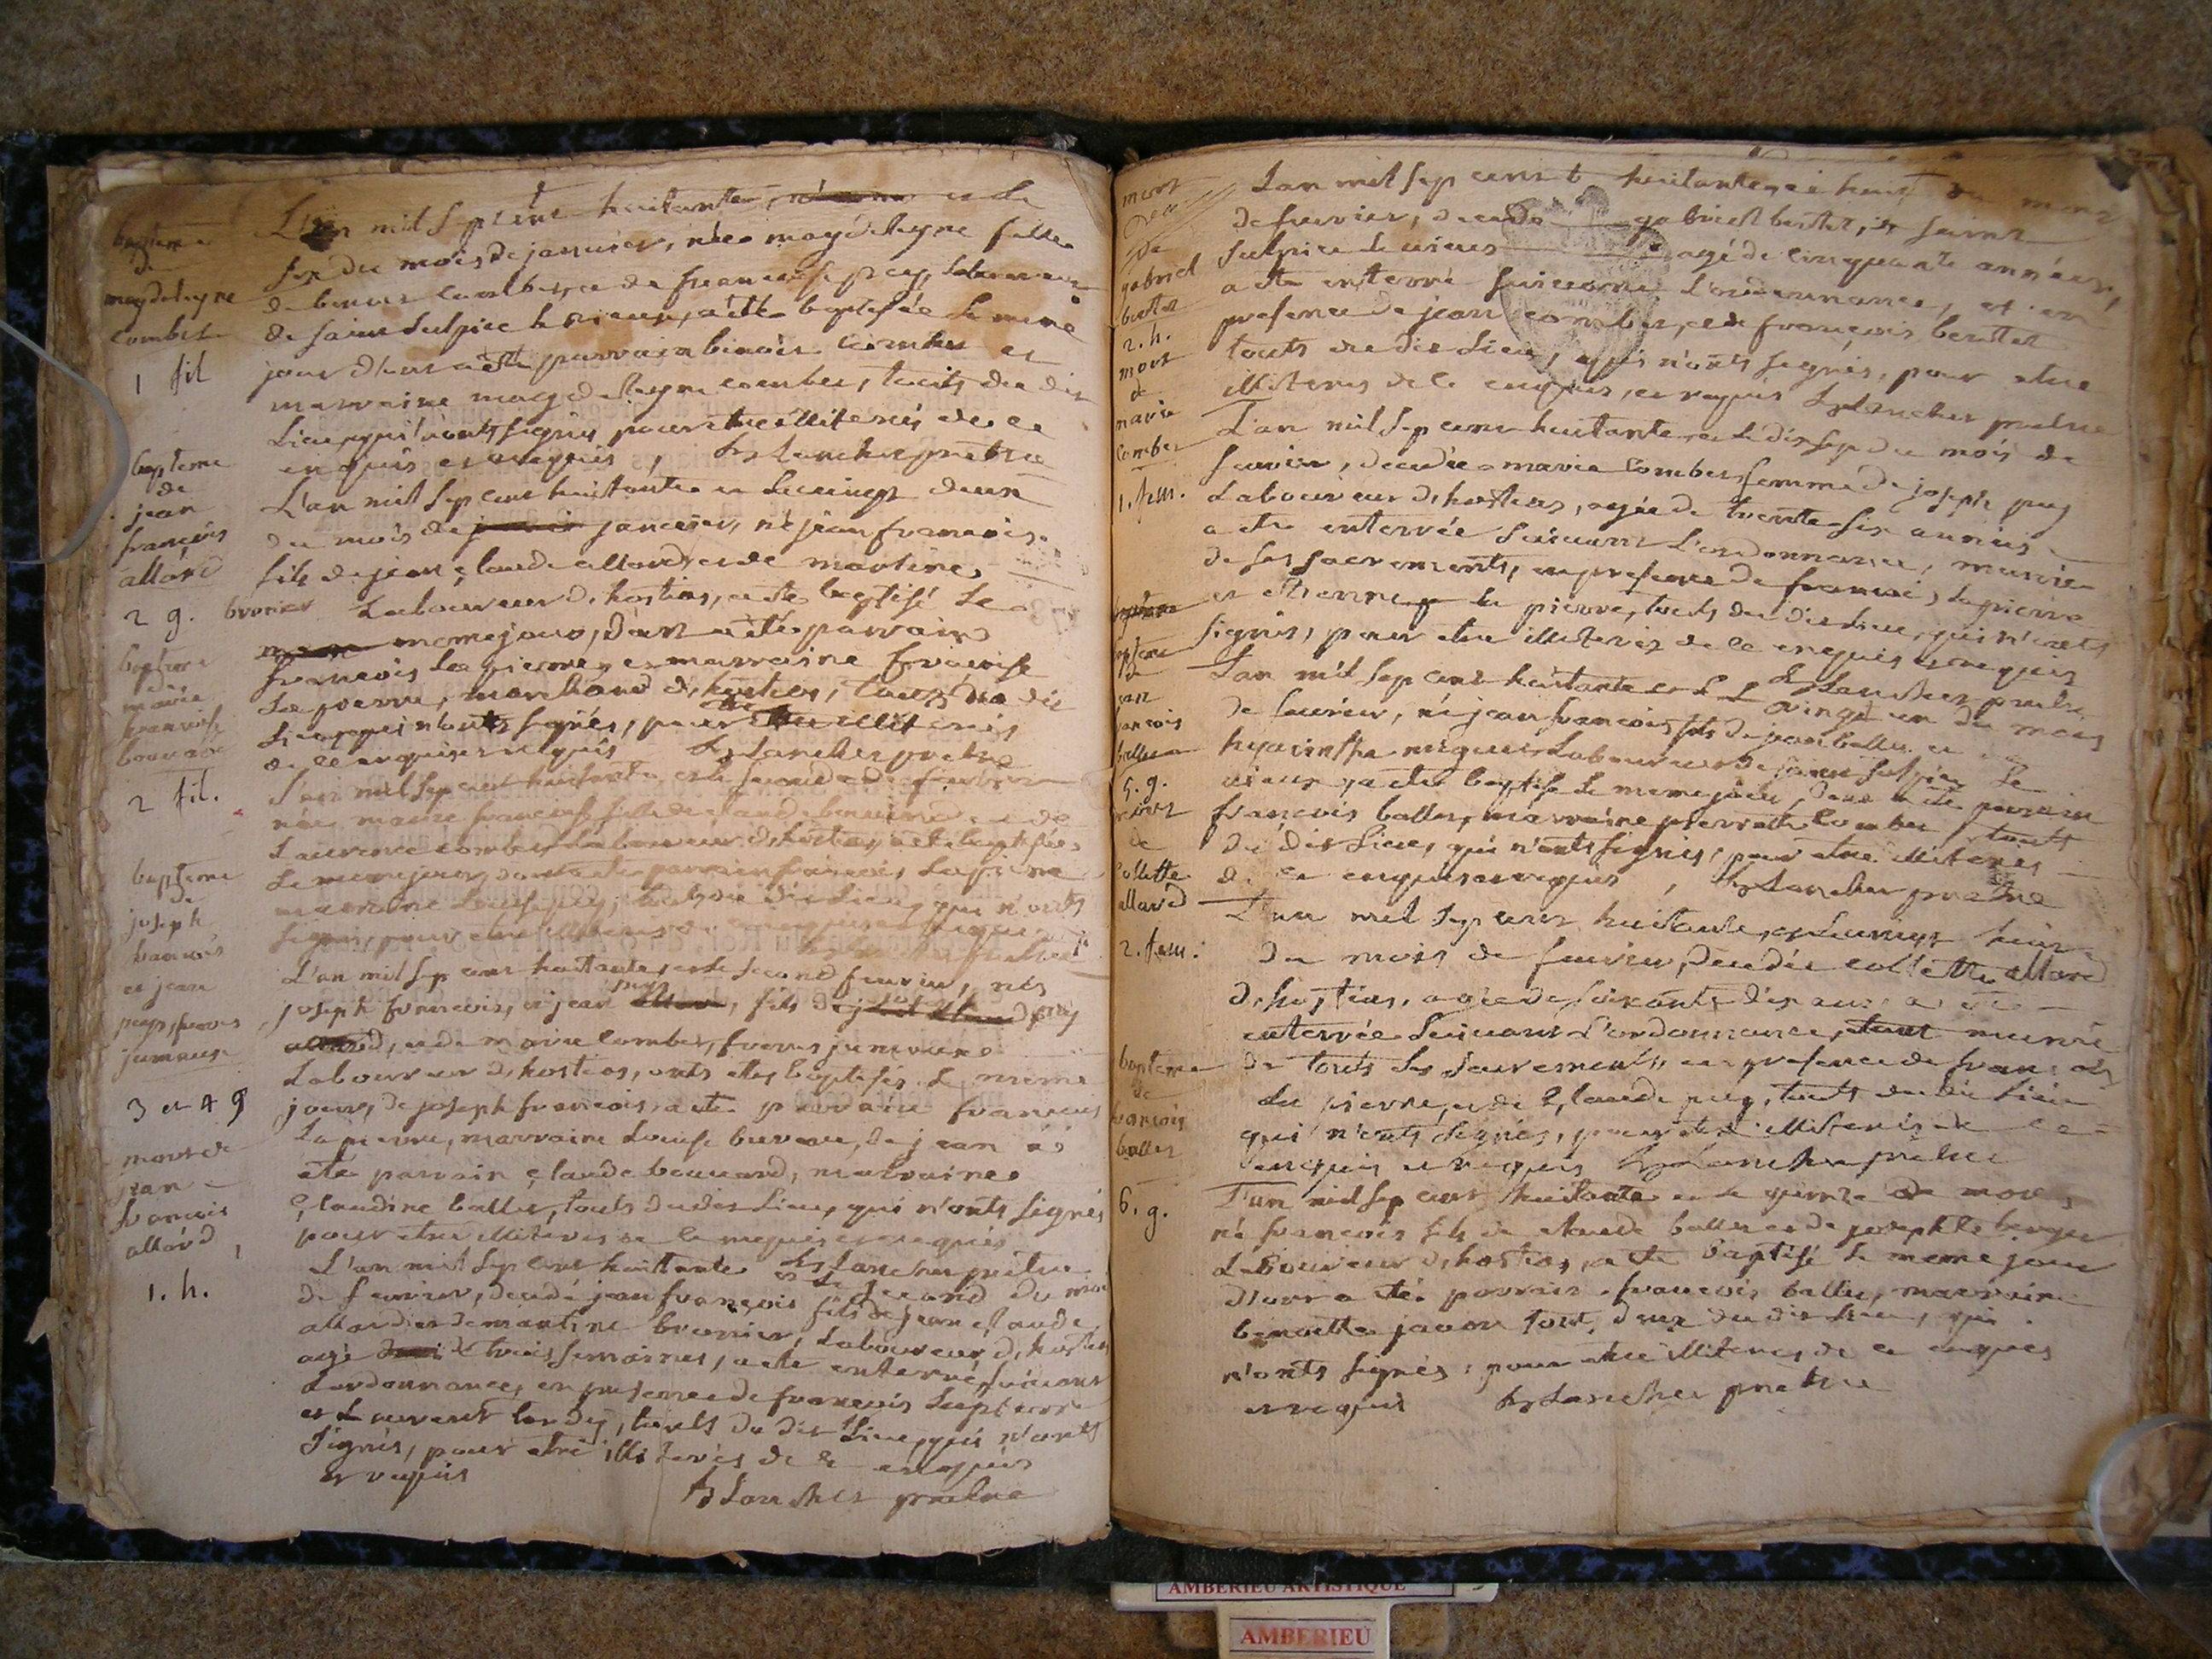 bapteme
de
magdelegne
combet
1 fil
L'an mil sept cent huitante, et le
six du mois de janvier, née magdelegne fille
de benoit combet, et de francoise pey, laboureur
de saint sulpice le vieux, a été baptisée le meme
jour dont a été parrain benoit combet et
marraine magdelegne combet, touts du dit
lieu, qui n'onts signés pour etre illiterés de ce
enquis et requis, Blanchet pretre
bapteme
de
jean
françois
allard
2 g.
L'an mil sept cent huitante et le vingt deux
du mois de janvier, né jean francois
fils de jean claude allard et de martine
brunier Laboureur d'hostias, a été baptisé le
meme jour, dont a été parrain
francois la pierre, et marraine francoise
la pierre, marchand d'hostias, touts du dit
lieu, qui n'onts signés, pour etre illiterés
de ce enquis et requis Blanchet pretre
bapteme
de
marie
francoise
bouvard
2 fil.
L'an mil sept cent huitante et le second de fevrier
née marie francoise fille de claude bouvard et de
Laurence combet laboureur d'hostias, a été baptisée
le meme jour, dont a été parrain francois lapierre
marraine Louise pey, touts du dit lieu, qui n'onts
signés, pour etre illiterés de ce enquis et requis
Blanchet pretre
bapteme
de
joseph
francois
et jean
pey, freres
jumeaux
3 et 4 g
L'an mil sept cent huitante, et le second fevrier, nés
joseph francois, et jean pey, fils de pey
et de marie combet, freres jumeaux
Laboureur d'hostias, onts étés baptisés le meme
jour, de joseph francois a été parrain francois
La pierre, marraine Louise, de jean a
été parrain claude bouvard, marraine
claudine ballet, touts du dit lieu, qui n'onts signés
pour etre illiterés de ce enquis et requis
Blanchet pretre
mort de
jean
francois
allard
1. h.
L'an mil sept cent huitante et le second du mois
de fevrier, decedé jean françois fils de jean claude
allard et de martine brunier, Laboureur d'hostias
agé de trois semaines, a été enterré, suivant
L'ordonnance, en presence de francois Lapierre
et Laurent tardy, touts du dit lieu, qui n'onts
signés, pour etre illiterés de ce enquis
et requis
Blanchet pretre
mort
de
gabriel
bertet
2. h.
L'an mil sept cent huitante, et le huit du mois
de fevrier, decedé gabriel bertet, de saint
sulpice le vieux agé de cinquante années,
a été enterré suivant L'ordonnance, et en
presence de jean combet, et de françois bertet
touts du dit lieu, qui n'onts signés, pour etre
illiterés de ce enquis, et requis Blanchet pretre
mort
de
marie
combet
1. fem.
L'an mil sept cent huitante et le dix sept du mois de
fevrier, decedée marie combet femme de joseph pey
Laboureur d'hostias, agée de trente six années
a été enterrée suivant L'ordonnance, munie
de ses sacrements, en presence de francois lapierre
et etienne la pierre, touts du dit lieu, qui n'onts
signés, pour etre illiterés de ce enquis et requis
Blanchet pretre
bapteme
de
jean
francois
ballet
5. g.
L'an mil sept cent huitante et le vingt un du mois
de fevrier, né jean francois fils de jean ballet et
hyacinthe Laboureur de saint sulpice le
vieux, a été baptisé le meme jour, dont a été parrain
francois ballet, marraine pierrette combet, touts
du dit lieu, qui n'onts signés, pour etre illiterés
de ce enquis et requis, Blanchet pretre
mort
de
collette
allard
2. fem.
L'an mil sept cent huitante, et le vingt huit
du mois de fevrier, decedée collette allard
d'hostias, agée de soixante dix ans, a été
enterrée suivant L'ordonnance, munie
de touts ses sacrements, en presence de francois
La pierre, et de claude pey, touts du dit lieu
qui n'onts signés, pour etre illiterés de ce
enquis et requis Blanchet pretre
bapteme
de
francois
ballet
6. g.
L'an mil sept cent huitante et le quinze de mars
né francois fils de claude ballet et de josephte berger
Laboureur d'hostias, a été baptisé le meme jour
dont a été parrain francois ballet, marraine
benoitte touts deux du dit lieu, qui
n'onts signés, pour etre illiterés de ce enquis
et requis Blanchet pretre
AMBERIEU ARTISTIQUE
AMBERIEU